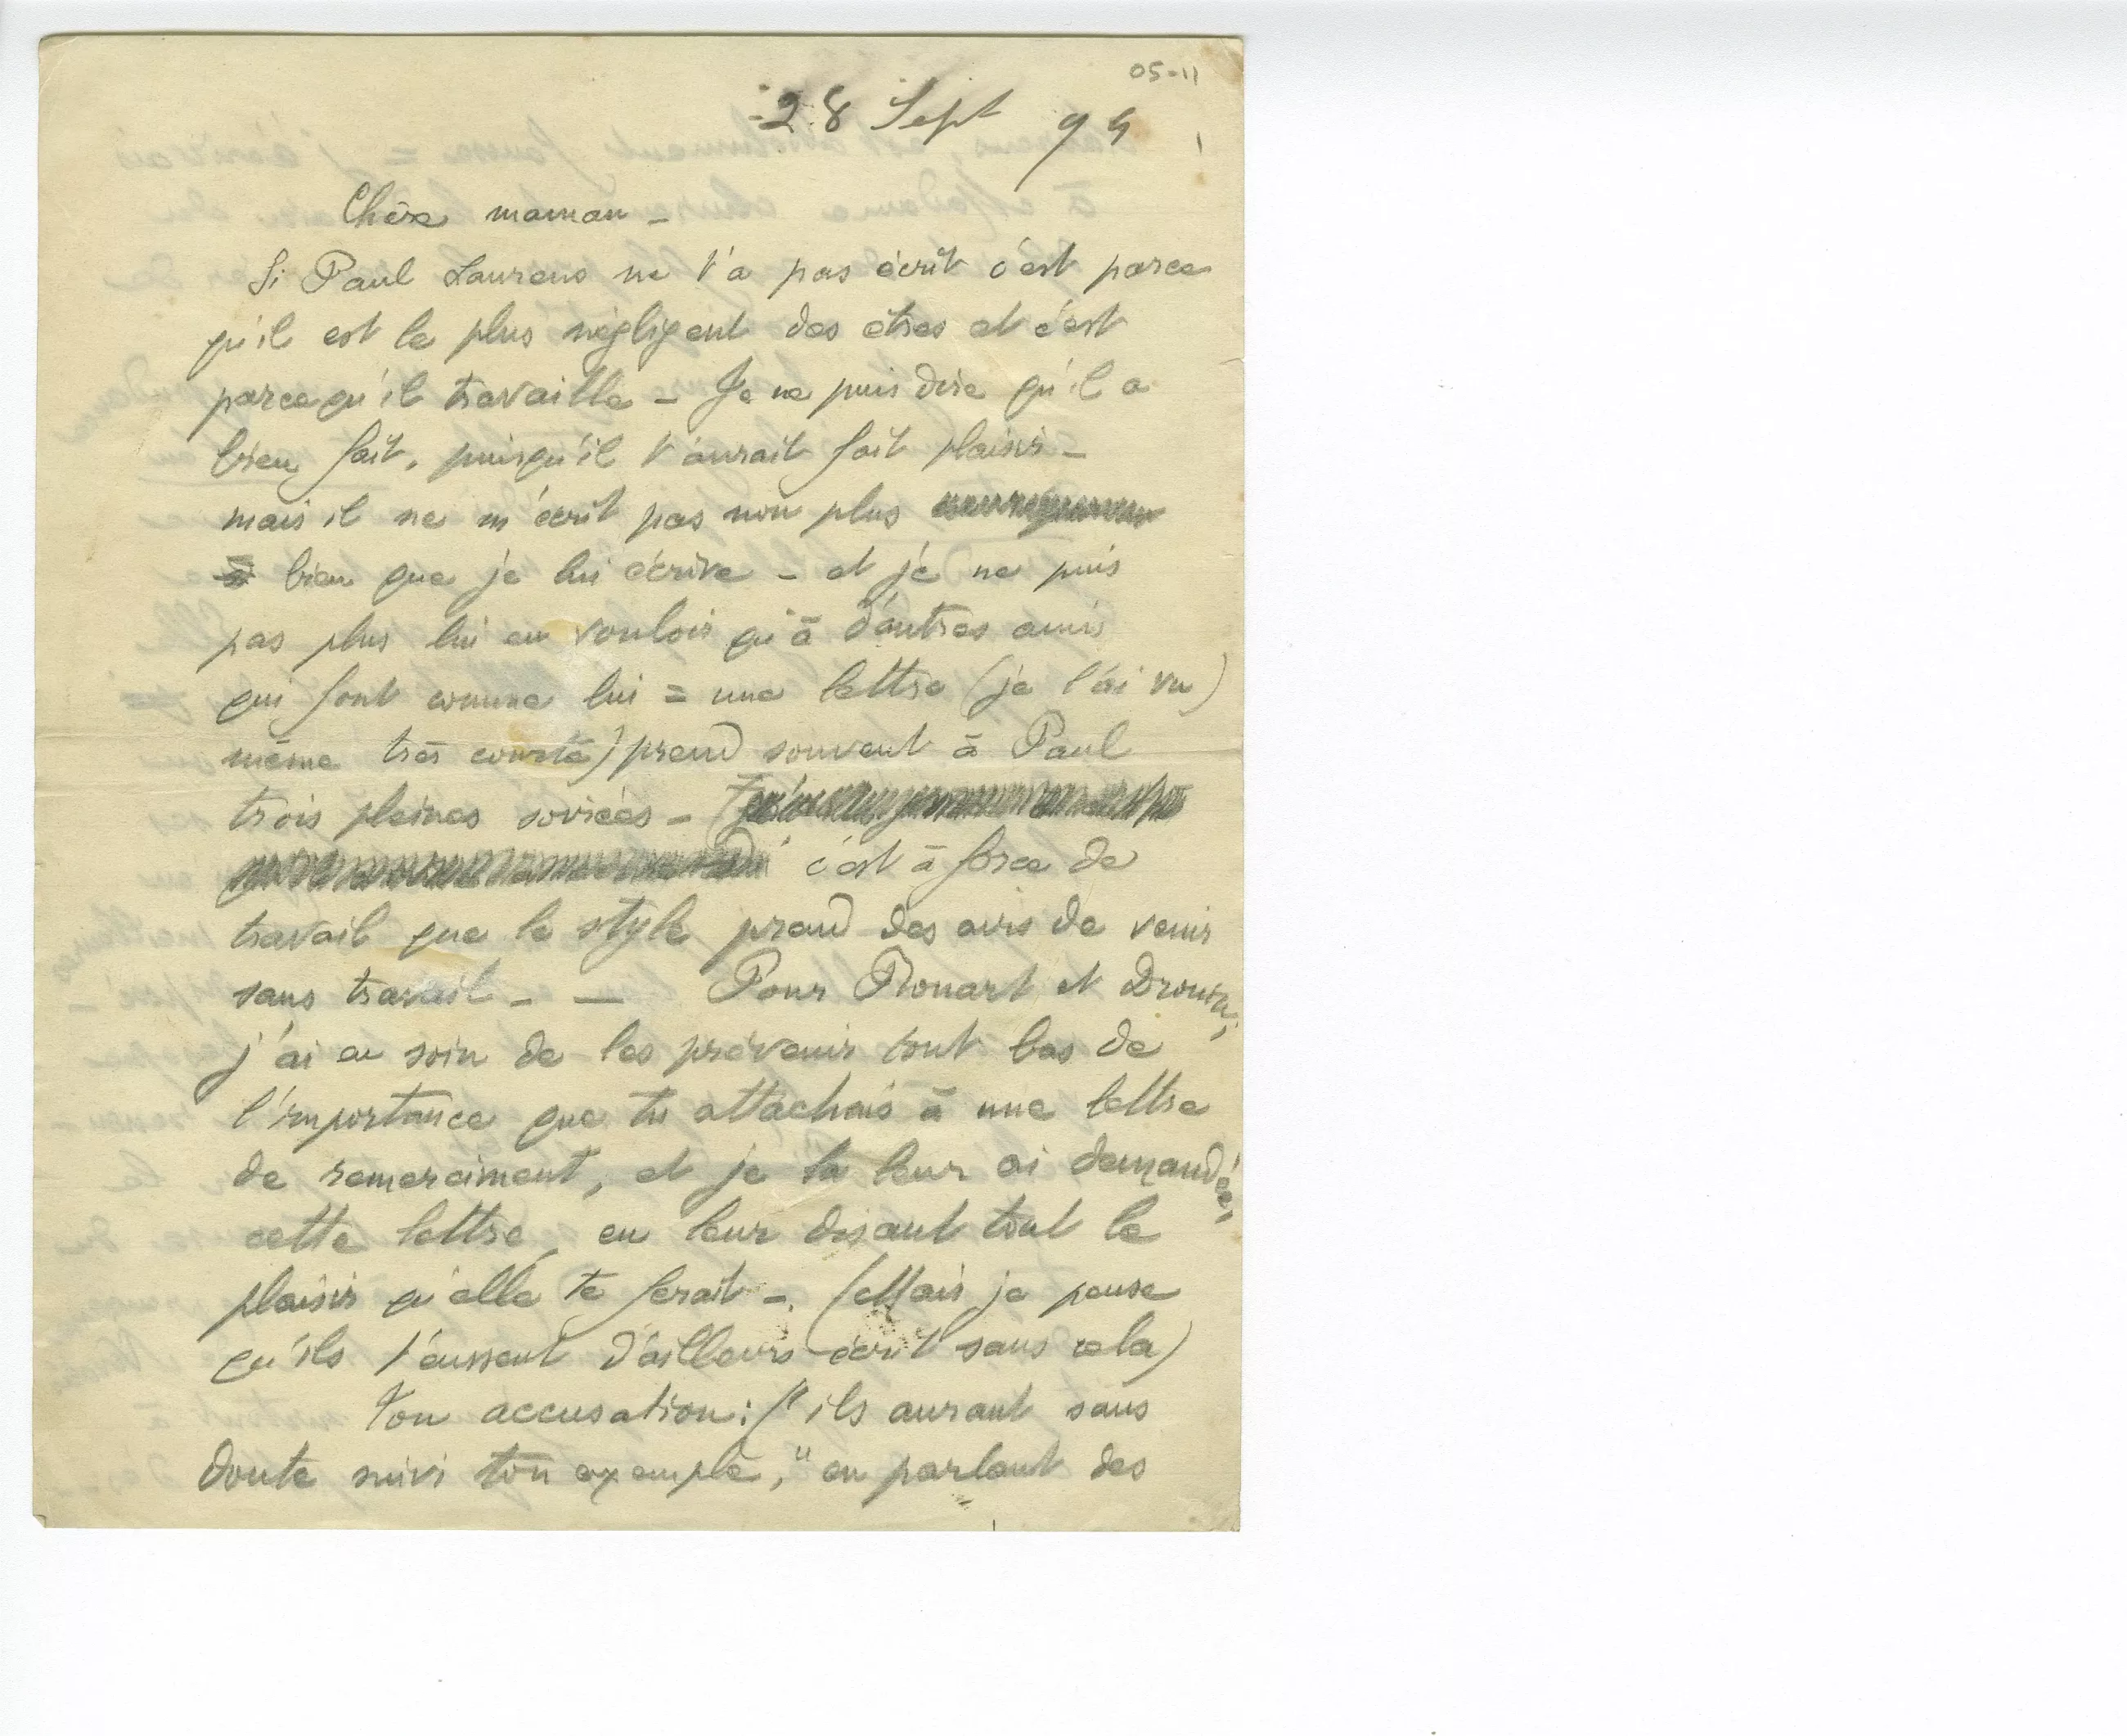 05-11
28 Sept 94
Chère maman _
Si Paul Laurens ne t'a pas écrit c'est parce
qu'il est le plus négligent des êtres et c'est
parcequ'il travaille _ Je ne puis dire qu'il a
bien fait, puisqu'il t'aurait fait plaisir _
mais il ne m'écrit pas non plus
bien que je lui écrive _ et je ne puis
pas plus lui en vouloir qu'à d'autres amis
qui font comme lui = une lettre (je l'ai vu)
même très courte) prend souvent à Paul
trois pleines soirées _
c'est à force de
travail que le style prend des airs de venir
sans travail _ _ Pour Rouart et Drouin,
j'ai eu soin de les prévenir tout bas de
l'importance que tu attachais à une lettre
de remerciment, et je la leur ai demandée,
cette lettre, en leur disant tout le
plaisir qu'elle te ferait _. (Mais je pense
qu'ils t'eussent d'ailleurs écrit sans cela)
Ton accusation: "ils auront sans
doute suivi ton exemple," en parlant des